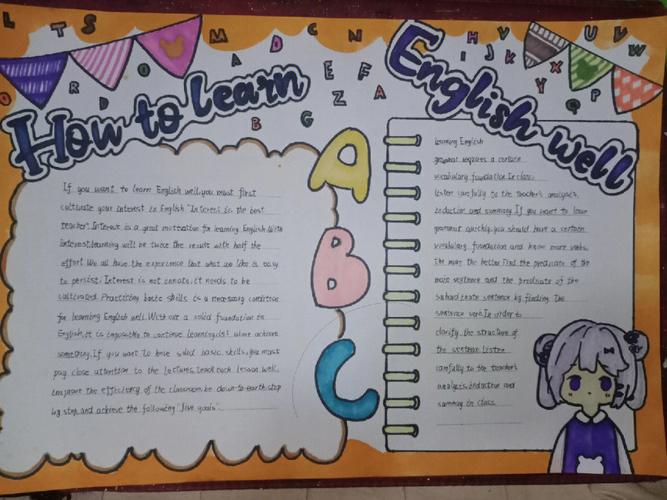 How to learn
English well
A
B
C
If you want to learn English well, you must first
cultivate your interest in English "Interest is the best
teacher". Interest is a great motivation for learning English. With
interest, learning will be twice the result with half the
effort. We all have the experience that what we like is easy
to persist. Interest is not innate, it needs to be
cultivated. Practicing basic skills is a necessary condition
for learning English well. Without a solid foundation in
English, it is impossible to continue learning, let alone achieve
something. If you want to have solid basic skills, you must
pay close attention to the lectures, teach each lesson well,
improve the efficiency of the classroom, be down-to-earth, step
by step, and achieve the following "five goals".
learning English
grammar requires a certain
vocabulary foundation. In class,
listen carefully to the teacher's analysis,
induction and summary. If you want to learn
grammar quickly, you should have a certain
vocabulary foundation and know more verbs.
The more the better. Find the predicate of the
main sentence and the predicate of the
subordinate sentence by finding the
sentence verb. In order to
clarify the structure of
the sentence, listen
carefully to the teacher's
analysis, induction and
summary in class.